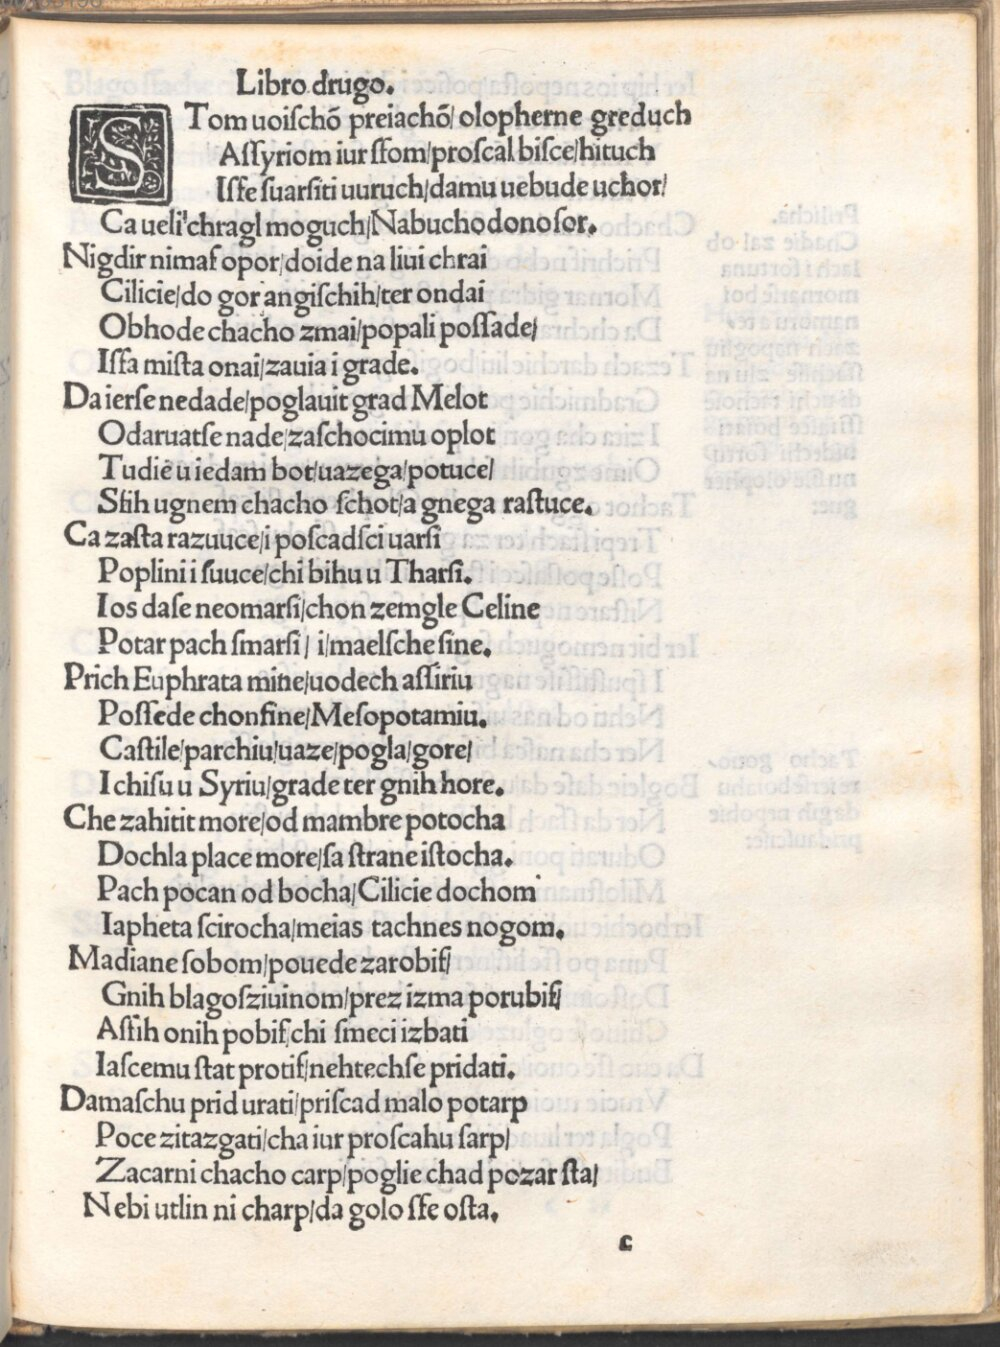 Libro drugo.
STom uoiſchõ preiachõ/ olopherne greduch
Aſſyriom iur ſſom/proſcal biſce/hituch
Iſſe ſuarſiti uuruch/damu uebude uchor/
Ca ueli'chragl moguch/Nabuchodonoſor.
Nigdir nimaſ opor/doide na liui chrai
Cilicie/do gor angiſchih/ter ondai
Obhode chacho zmai/popali poſſade/
Iſſa miſta onai/zauia i grade.
Da ierſe nedade/poglauit grad Melot
Odaruatſe nade/zaſchocimu oplot
Tudiẽ uiedam bot/uazega/potuce/
Sſih ugnem chacho ſchot/a gnega raſtuce.
Ca zaſta razuuce/i poſcadſci uarſi
Poplini i ſuuce/chi bihu u Tharſi.
Ios daſe neomarſi/chon zemgle Celine
Potar pach ſmarſi/ i/maelſche ſine.
Prich Euphrata mine/uodech aſſiriu
Poſſede chonfine/Meſopotamiu.
Caſtile/parchiu/uaze/pogla/gore/
I chiſu u Syriu/grade ter gnih hore.
Che zahitit more/od mambre potocha
Dochla place more/ſa ſtrane iſtocha.
Pach pocan od bocha/Cilicie dochom
Iapheta ſcirocha/meias tachnes nogom.
Madiane ſobom/pouede zarobiſ/
Gnih blagoſziuinom/prez izma porubiſ/
Aſſih onih pobiſ/chi ſmeci izbati
Iaſcemu ſtat protiſ/nehtechſe pridati.
Damaſchu prid urati/priſcad malo potarp
Poce zitazgati/cha iur proſcahu ſarp/
Zacarni chacho carp/poglie chad pozar ſta/
Nebi utlin ni charp/da golo ſſe oſta.
c